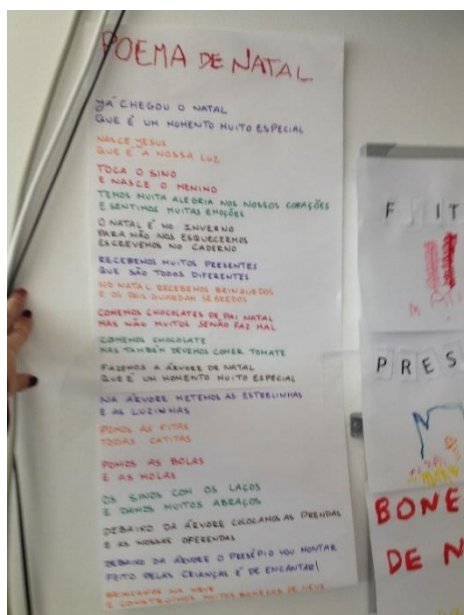 POEMA DE NATAL
JÁ CHEGOU O NATAL
QUE É UM MOMENTO MUITO ESPECIAL
NASCE JESUS
QUE É A NOSSA LUZ
TOCA O SINO
E NASCE O MENINO
TEMOS MUITA ALEGRIA NOS NOSSOS CORAÇÕES
E SENTIMOS MUITAS EMOÇÕES
O NATAL É NO INVERNO
PARA NÃO NOS ESQUECERMOS
ESCREVEMOS NO CADERNO
RECEBEMOS MUITOS PRESENTES
QUE SÃO TODOS DIFERENTES
NO NATAL RECEBEMOS BRINQUEDOS
E OS PAIS GUARDAM SEGREDOS
COMEMOS CHOCOLATES DE PAI NATAL
MAS NÃO MUITOS SENÃO FAZ MAL
COMEMOS CHOCOLATE
MAS TAMBÉM DEVEMOS COMER TOMATE
FAZEMOS A ÁRVORE DE NATAL
QUE É UM MOMENTO MUITO ESPECIAL
NA ÁRVORE METEMOS AS ESTRELINHAS
E AS LUZINHAS
POMOS AS FITAS
TODAS CATITAS
POMOS AS BOLAS
E AS MOLAS
OS SINOS COM OS LAÇOS
E DAMOS MUITOS ABRAÇOS
DEBAIXO DA ÁRVORE COLOCAMOS AS PRENDAS
E AS NOSSAS OFERENDAS
DEBAIXO DA ÁRVORE O PRESÉPIO VOU MONTAR
FEITO PELAS CRIANÇAS É DE ENCANTAR!
BRINCAMOS NA NEVE
E CONSTRUÍMOS MUITOS BONECOS DE NEVE
F IT
PRES
BONE
DE N